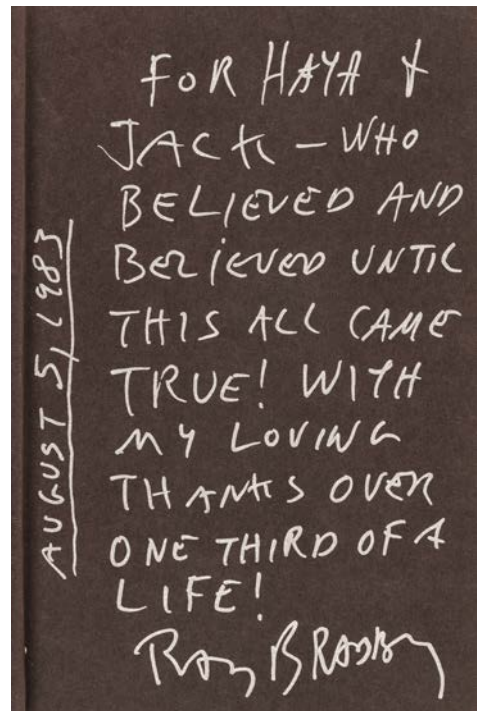 FOR HAYA &
JACK – WHO
BELIEVED AND
BELIEVED UNTIL
THIS ALL CAME
TRUE! WITH
MY LOVING
THANKS OVER
ONE THIRD OF A
LIFE!
RAY BRADBURY
AUGUST 5, 1983